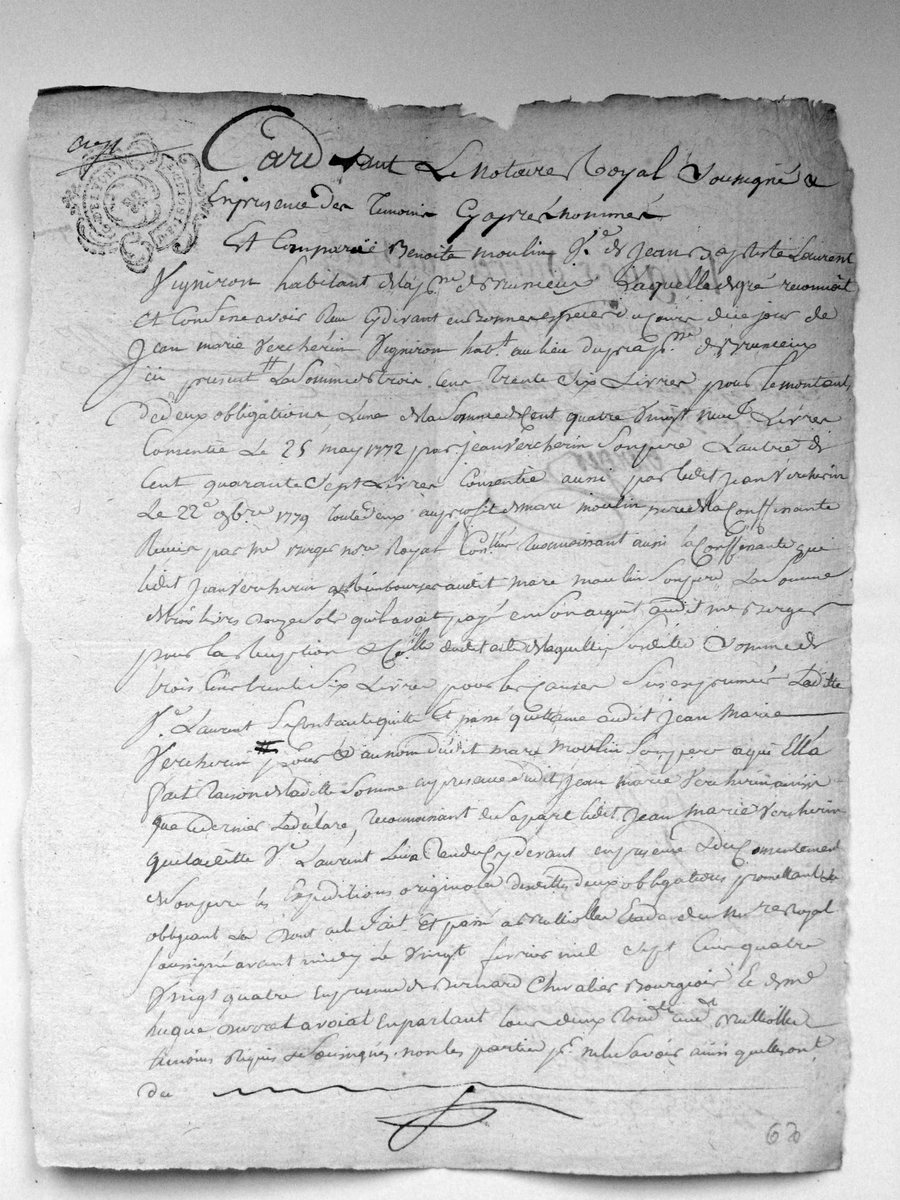 Pard vant Le Notaire Royal Sousigné &
En presence des Temoins Cyapres nommés
Est Comparüe Benoite moulin Vve de Jean Baptiste Laurent
Vigniron habitant dela psse de Brunieux Laquelle degré reconnoit
et Confesse avoir Reçu cy devant en Bonnes especes du Cours dece jour de
Jean marie Vercherin Vigniron habt au lieu du psse de Brunieux
ici present La Somme de trois Cens Trente Six Livres pour le montant
de deux obligations L'une dela Somme de Cent quatre Vingt neuf Livres
Consentie Le 25 may 1772 par Jean Vercherin Son pere L'autre de
Cent quarante Sept Livres Consentie aussi par ledit Jean Vercherin
Le 22e 1779 toutes deux au profit de marc moulin pere dela Confessante
Recues par me Burges nore Royal reconnoissant aussi la Confessante que
ledit Jean Vercherin a Rembourser audit marc moulin Son pere La Somme
de trois livres douze Sols qu'il avait payé en Son acquit audit me Burges
pour la Reception & dudit acte de laquelle Susditte Somme de
trois Cens trente Six Livres pour les Causes Sus exprimés Laditte
Vve Laurent Se Contante quitte Et passe quittance audit Jean Marie
Vercherin pour & au nom dudit marc moulin Son pere a qui Ella
fait Raison de laditte Somme en presence dudit Jean marie Vercherin ainsi
que Ce dernier Le déclare, reconnoissant de Sa part ledit Jean marie Vercherin
que laditte Vve Laurent Lui a Rendu Cy devant en presence & du Consentement
de Son pere les Expeditions originales desdittes deux obligations promettant &
obligeant &a Dont acte fait Et passé a Etude du Nore Royal
Sousigné avant midy Le Vingt fevrier mil Sept Cens quatre
Vingt quatre En presence de Bernard Chevalier Bourgeois Et de me
avocat En parlant tous deux
temoins Requis & Sousignés, non les parties pr ne le Savoir ainsi quelles ont
dit
63